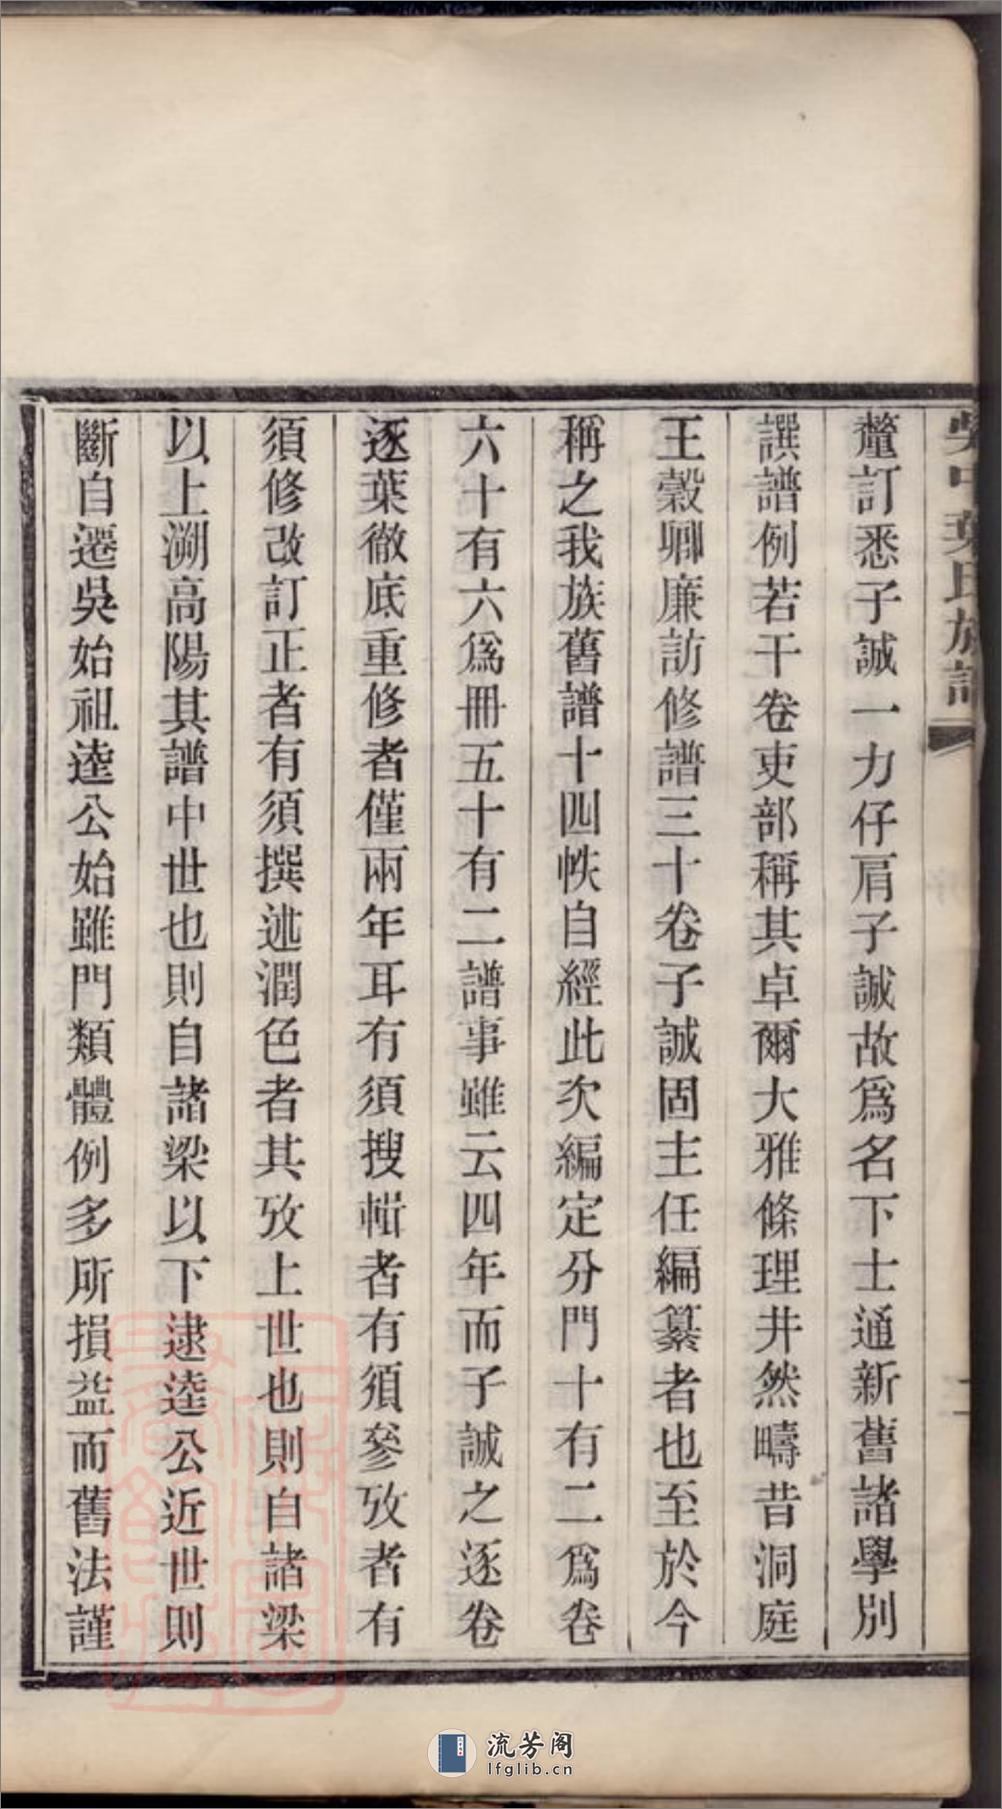 吳中葉氏族譜
釐訂悉子誠一力仔肩子誠故爲名下士通新舊諸學別
譔譜例若干卷吏部稱其卓爾大雅條理井然疇昔洞庭
王穀卿廉訪修譜三十卷子誠固主任編纂者也至於今
稱之我族舊譜十四帙自經此次編定分門十有二爲卷
六十有六爲冊五十有二譜事雖云四年而子誠之逐卷
逐葉徹底重修者僅兩年耳有須搜輯者有須參攷者有
須修改訂正者有須撰述潤色者其攷上世也則自諸梁
以上溯高陽其譜中世也則自諸梁以下逮逵公近世則
斷自遷吳始祖逵公始雖門類體例多所損益而舊法謹
流芳阁
lfglib.cn